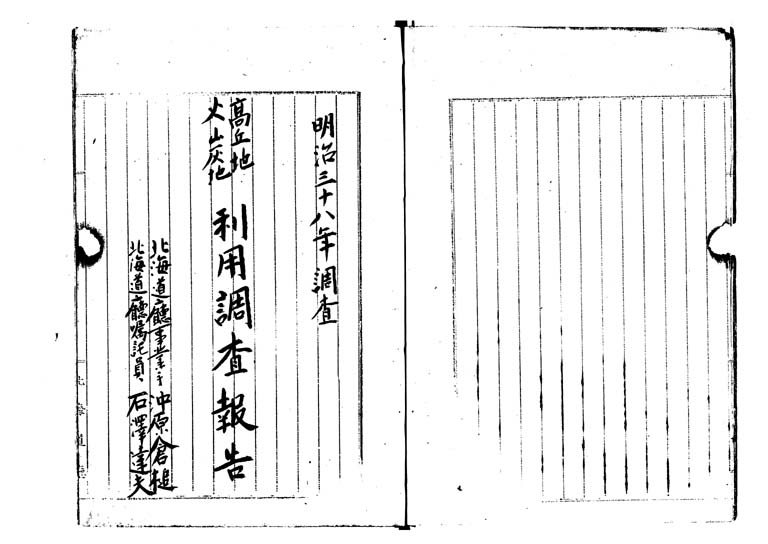 明治三十八年調査
高丘地
火山灰地
利用調査報告
北海道廳事業手 沖原倉槌
北海道廳嘱託員 石澤達夫